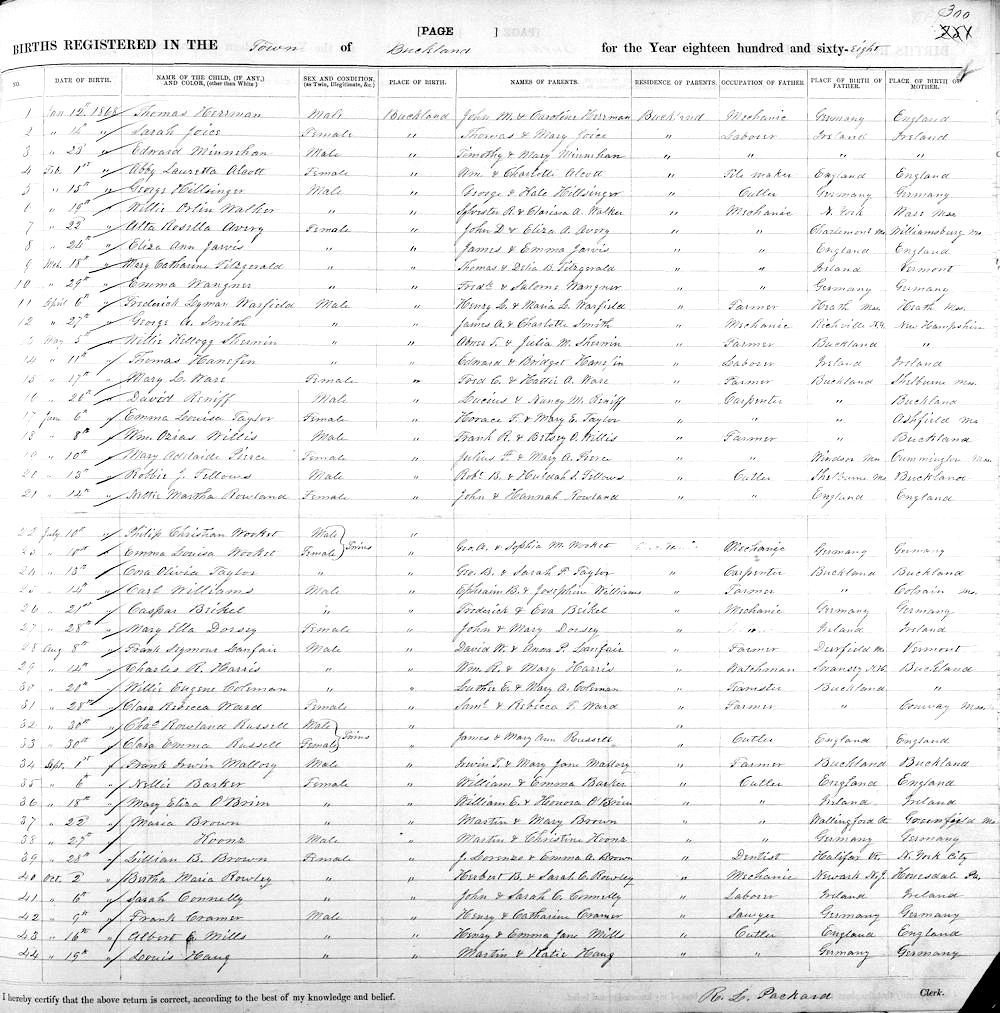 300
[PAGE ]
251
BIRTHS REGISTERED IN THE Town of Buckland for the Year eighteen hundred and sixty-eight
NO. DATE OF BIRTH. NAME OF THE CHILD, (IF ANY,) AND COLOR, (other than White) SEX AND CONDITION, (as Twin, Illegitimate, &c.) PLACE OF BIRTH. NAMES OF PARENTS. RESIDENCE OF PARENTS. OCCUPATION OF FATHER. PLACE OF BIRTH OF FATHER. PLACE OF BIRTH OF MOTHER.
1 Jan 12th 1868 Thomas Herrman Male Buckland John M. & Caroline Herrman Buckland Mechanic Germany England
2 " 14 " Sarah Joice Female " Thomas & Mary Joice " Laborer Ireland Ireland
3 " 23 " Edward Minnehan Male " Timothy & Mary Minnehan " " " "
4 Feb. 1st " Abby Lauretta Alcott Female " Wm. & Charlotte Alcott " File maker England England
5 " 15th " George Hillsinger Male " George & Hale Hillsinger " Cutler Germany Germany
6 " 19th " Willie Orlin Walker " " Sylvester R. & Clarissa A. Walker " Mechanic N. York Ware Mas.
7 " 22 " Alta Rosilla Avery Female " John D. & Eliza A. Avery " " Charlemont Ms. Williamsburg Ms
8 " 24th " Eliza Ann Jarvis " " James & Emma Jarvis " " England England
9 18th " Mary Catharine Fitzgerald " " Thomas & Delia B. Fitzgerald " " Ireland Vermont
10 " 29th " Emma Wangner " " Fredk. & Salome Wangner " " Germany Germany
11 April 6th " Frederick Lyman Warfield Male " Henry L. & Maria L. Warfield " Farmer Heath Mas. Heath Mas.
12 " 27th " George A. Smith " " James A. & Charlotte Smith " Mechanic Richville New Hampshire
13 May 5 " Willie Kellogg Sherwin " " Abner T. & Julia M. Sherwin " Farmer Buckland "
14 " 11th " Thomas Hanefin " " Edward & Bridget Hanefin " Laborer Ireland Ireland
15 " 17th " Mary L. Ware Female " Fred C. & Hattie A. Ware " Farmer Buckland Shelburne Mas.
16 " 26th " David Reniff Male " Lucius & Nancy M. Reniff " Carpenter " Buckland
17 June 6th " Emma Louisa Taylor Female " Horace F. & Mary E. Taylor " " " Ashfield Ms
18 " 8th " Wm. Ozias Willis Male " Frank R. & Betsey O. Willis " Farmer " Buckland
19 " 10th " Mary Adelaide Pierce Female " Julius F. & Mary A. Pierce " " Windsor Ms Cummington Mas
20 " 13th " Robbie J. Fellows Male " Robt. B. & Huldah S. Fellows " Cutler Shelburne Ms Buckland
21 " 14th " Nettie Martha Rowland Female " John & Hannah Rowland " " England England
22 July 10th " Philip Christian Wooket Male Twins "
23 " 10th " Emma Louisa Wooket Female Geo. A. & Sophia M. Wooket Mechanic Germany Germany
24 " 13th " Cora Olivia Taylor " " Geo. B. & Sarah F. Taylor " Carpenter Buckland Buckland
25 " 14th " Carl Williams Male " Ephraim B. & Josephine Williams " Farmer " Colrain Ms.
26 " 21st " Caspar Brikel " " Frederick & Eva Brikel " Mechanic Germany Germany
27 " 28th " Mary Ella Dorsey Female " John & Mary Dorsey " Ireland Ireland
28 Aug 8th " Frank Seymour Lanfair Male " David W. & Anna P. Lanfair " Farmer Deerfield Ms Vermont
29 " 14th " Charles R. Harris " " Wm. R. & Mary Harris " Watchman Swansey N.H. Buckland
30 " 20th " Willie Eugene Coleman " " Luther E. & Mary A. Coleman " Teamster Buckland "
31 " 28th " Clara Rebecca Ward Female " Saml. & Rebecca F. Ward " Farmer " Conway Mas.
32 " 30th " Chas. Rowland Russell Male Twins " "
33 " 30th " Clara Emma Russell Female " James & Mary Ann Russell " Cutler England England
34 Sept. 1st " Frank Irwin Mallory Male " Irwin T. & Mary Jane Mallory " Farmer Buckland Buckland
35 " 6th " Nellie Barker Female " William & Emma Barker " Cutler England England
36 " 18th " Mary Eliza O'Brien " " William E. & Honora O'Brien " " Ireland Ireland
37 " 22 " Maria Brown " " Martin & Mary Brown " " Wallingford Ct Greenfield Ms
38 " 27th " Koonz Male " Martin & Christine Koonz " " Germany Germany
39 " 28th " Lillian B. Brown Female " J. Lorenzo & Emma A. Brown " Dentist Halifax Vt. N. York City
40 Oct. 2 " Bertha Maria Rowley " " Herbert B. & Sarah C. Rowley " Mechanic Newark N.J. Honesdale Pa.
41 " 6th " Sarah Connelly " " John & Sarah C. Connelly " Laborer Ireland Ireland
42 " 9th " Frank Cramer Male " Henry & Catharine Cramer " Sawyer Germany Germany
43 " 16th " Albert E. Mills " " Henry & Emma Jane Mills " Cutler England England
44 " 19th " Louis Haug " " Martin & Katie Haug " " Germany Germany
I hereby certify that the above return is correct, according to the best of my knowledge and belief. R. L. Packard Clerk.